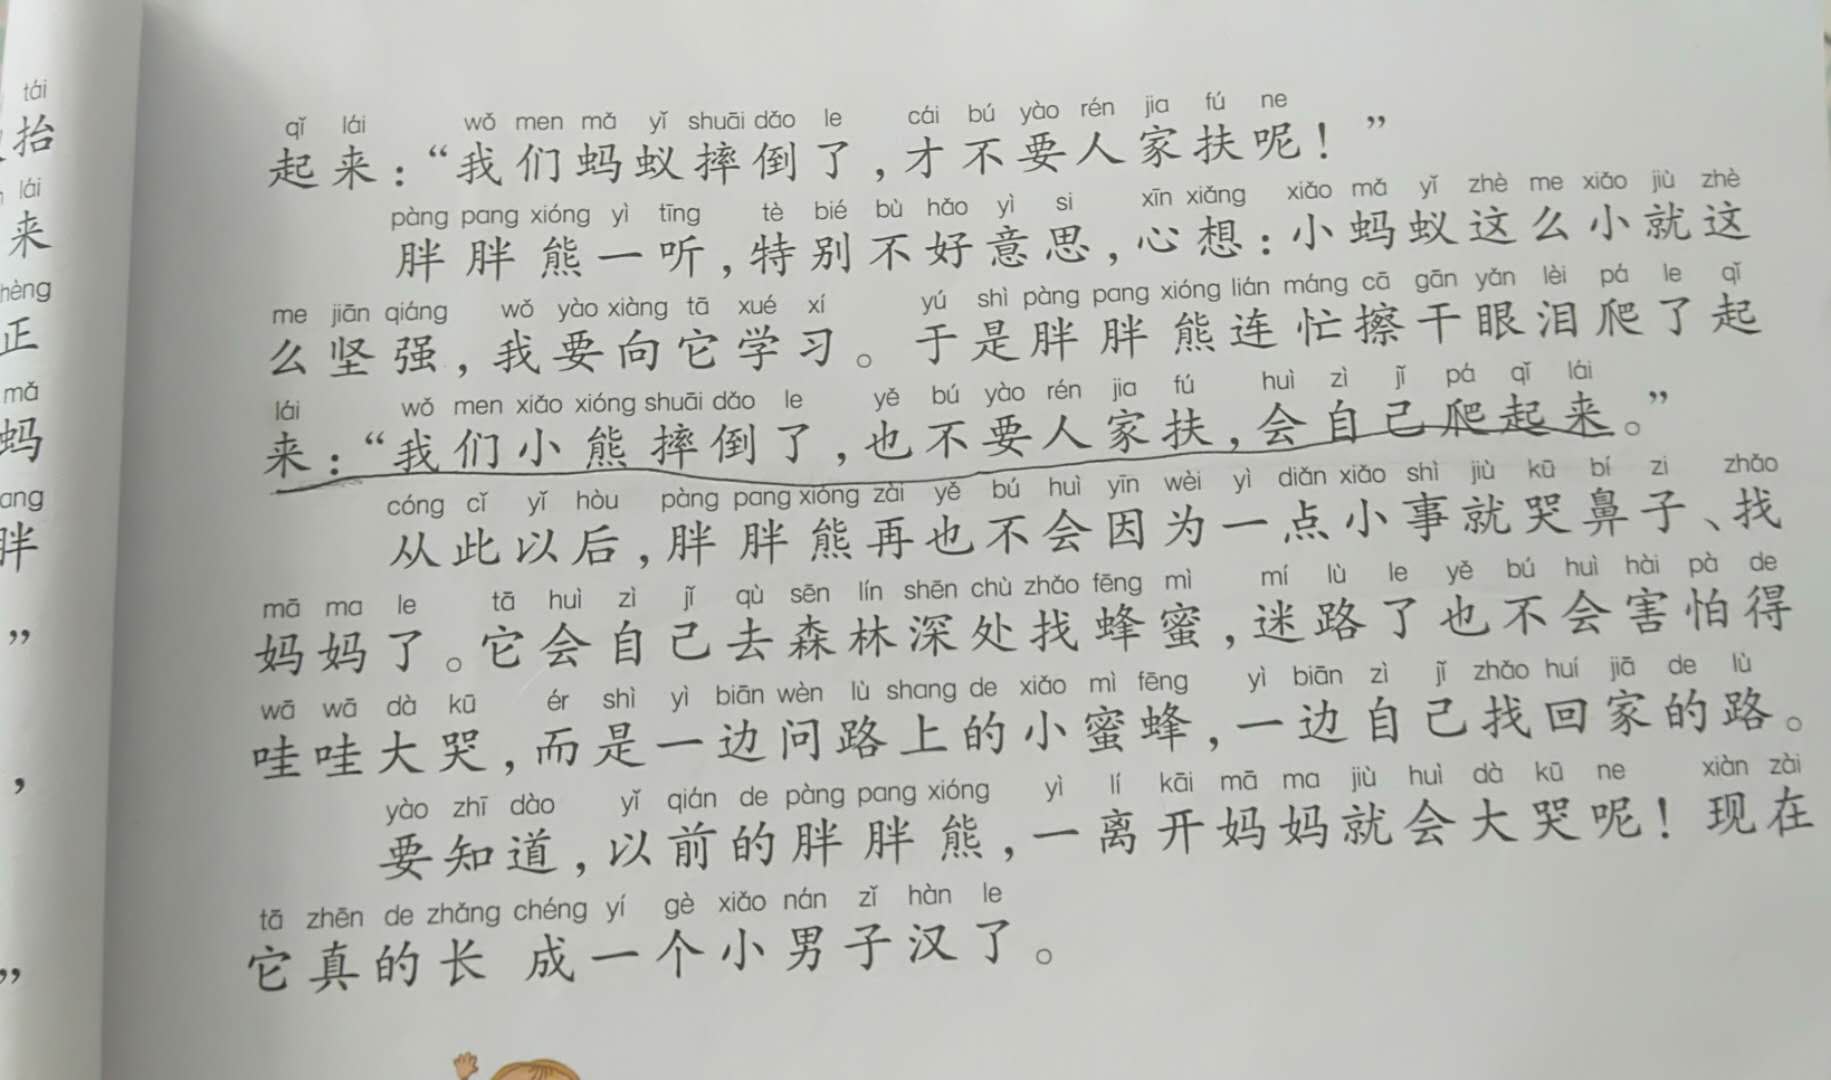 tái
抬
lái
来
hèng
正
mǎ
蚂
ang
胖
”
，
”
qǐ lái wǒ men mǎ yǐ shuāi dǎo le cái bú yào rén jia fú ne
起来：“我们蚂蚁摔倒了，才不要人家扶呢！”
pàng pang xióng yì tīng tè bié bù hǎo yì si xīn xiǎng xiǎo mǎ yǐ zhè me xiǎo jiù zhè
胖胖熊一听，特别不好意思，心想：小蚂蚁这么小就这
me jiān qiáng wǒ yào xiàng tā xué xí yú shì pàng pang xióng lián máng cā gān yǎn lèi pá le qǐ
么坚强，我要向它学习。于是胖胖熊连忙擦干眼泪爬了起
lái wǒ men xiǎo xióng shuāi dǎo le yě bú yào rén jia fú huì zì jǐ pá qǐ lái
来：“我们小熊摔倒了，也不要人家扶，会自己爬起来。”
cóng cǐ yǐ hòu pàng pang xióng zài yě bú huì yīn wèi yì diǎn xiǎo shì jiù kū bí zi zhǎo
从此以后，胖胖熊再也不会因为一点小事就哭鼻子、找
mā ma le tā huì zì jǐ qù sēn lín shēn chù zhǎo fēng mì mí lù le yě bú huì hài pà de
妈妈了。它会自己去森林深处找蜂蜜，迷路了也不会害怕得
wā wā dà kū ér shì yì biān wèn lù shang de xiǎo mì fēng yì biān zì jǐ zhǎo huí jiā de lù
哇哇大哭，而是一边问路上的小蜜蜂，一边自己找回家的路。
yào zhī dào yǐ qián de pàng pang xióng yì lí kāi mā ma jiù huì dà kū ne xiàn zài
要知道，以前的胖胖熊，一离开妈妈就会大哭呢！现在
tā zhēn de zhǎng chéng yí gè xiǎo nán zǐ hàn le
它真的长成一个小男子汉了。